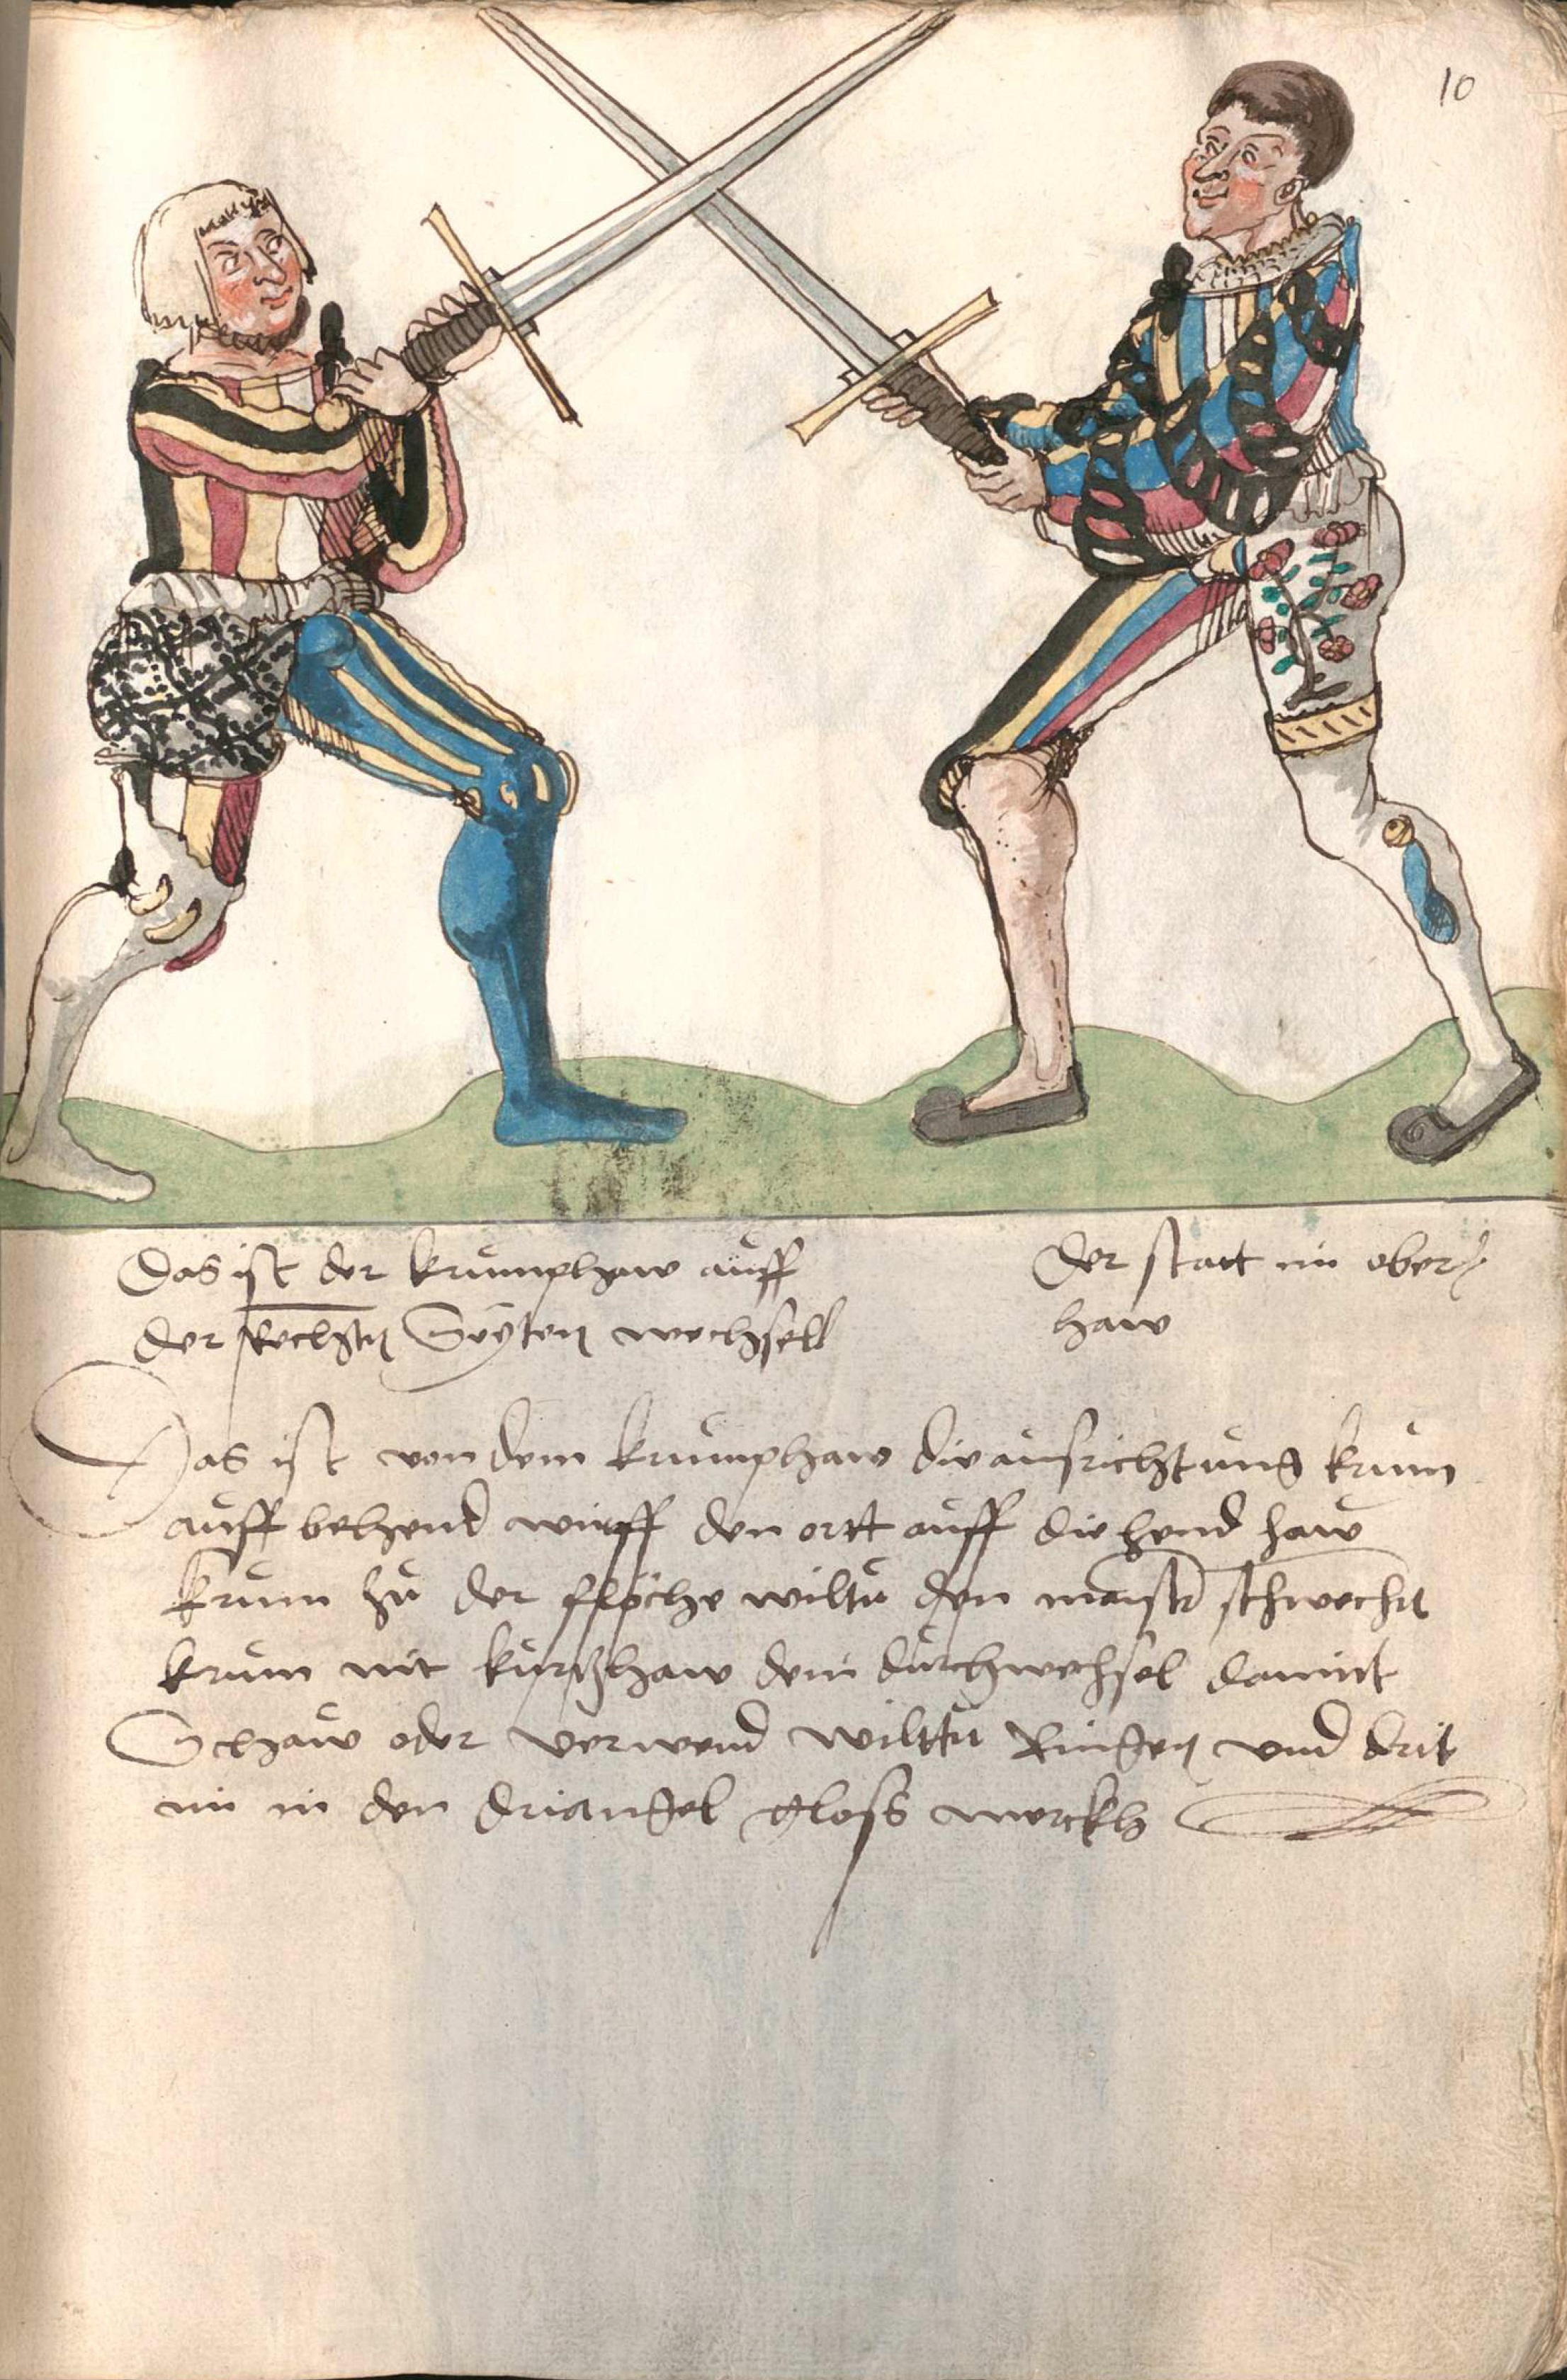 10
Das ist der krumphaw auff
der Rechten Seyten wechsell
Der statt im ober
haw
Das ist von dem krumphaw die ausrichtung krum
auff behend wirff den ortt auff die hend haw
krum zu der flöche wiltu den maister schwechen
krum nit kurtzhaw dem durchwechsel damint
Schaw oder verwend wilttu Ringen vnd drit
im in den driangel gloss merckh